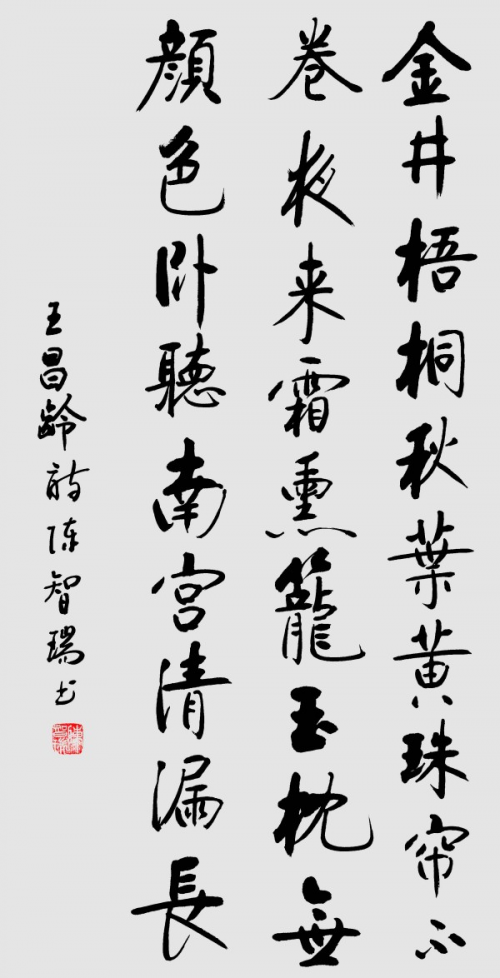 金井梧桐秋葉黄珠帘不
卷夜来霜熏籠玉枕無
顔色卧聽南宮清漏長
王昌齡詩陈智瑞书